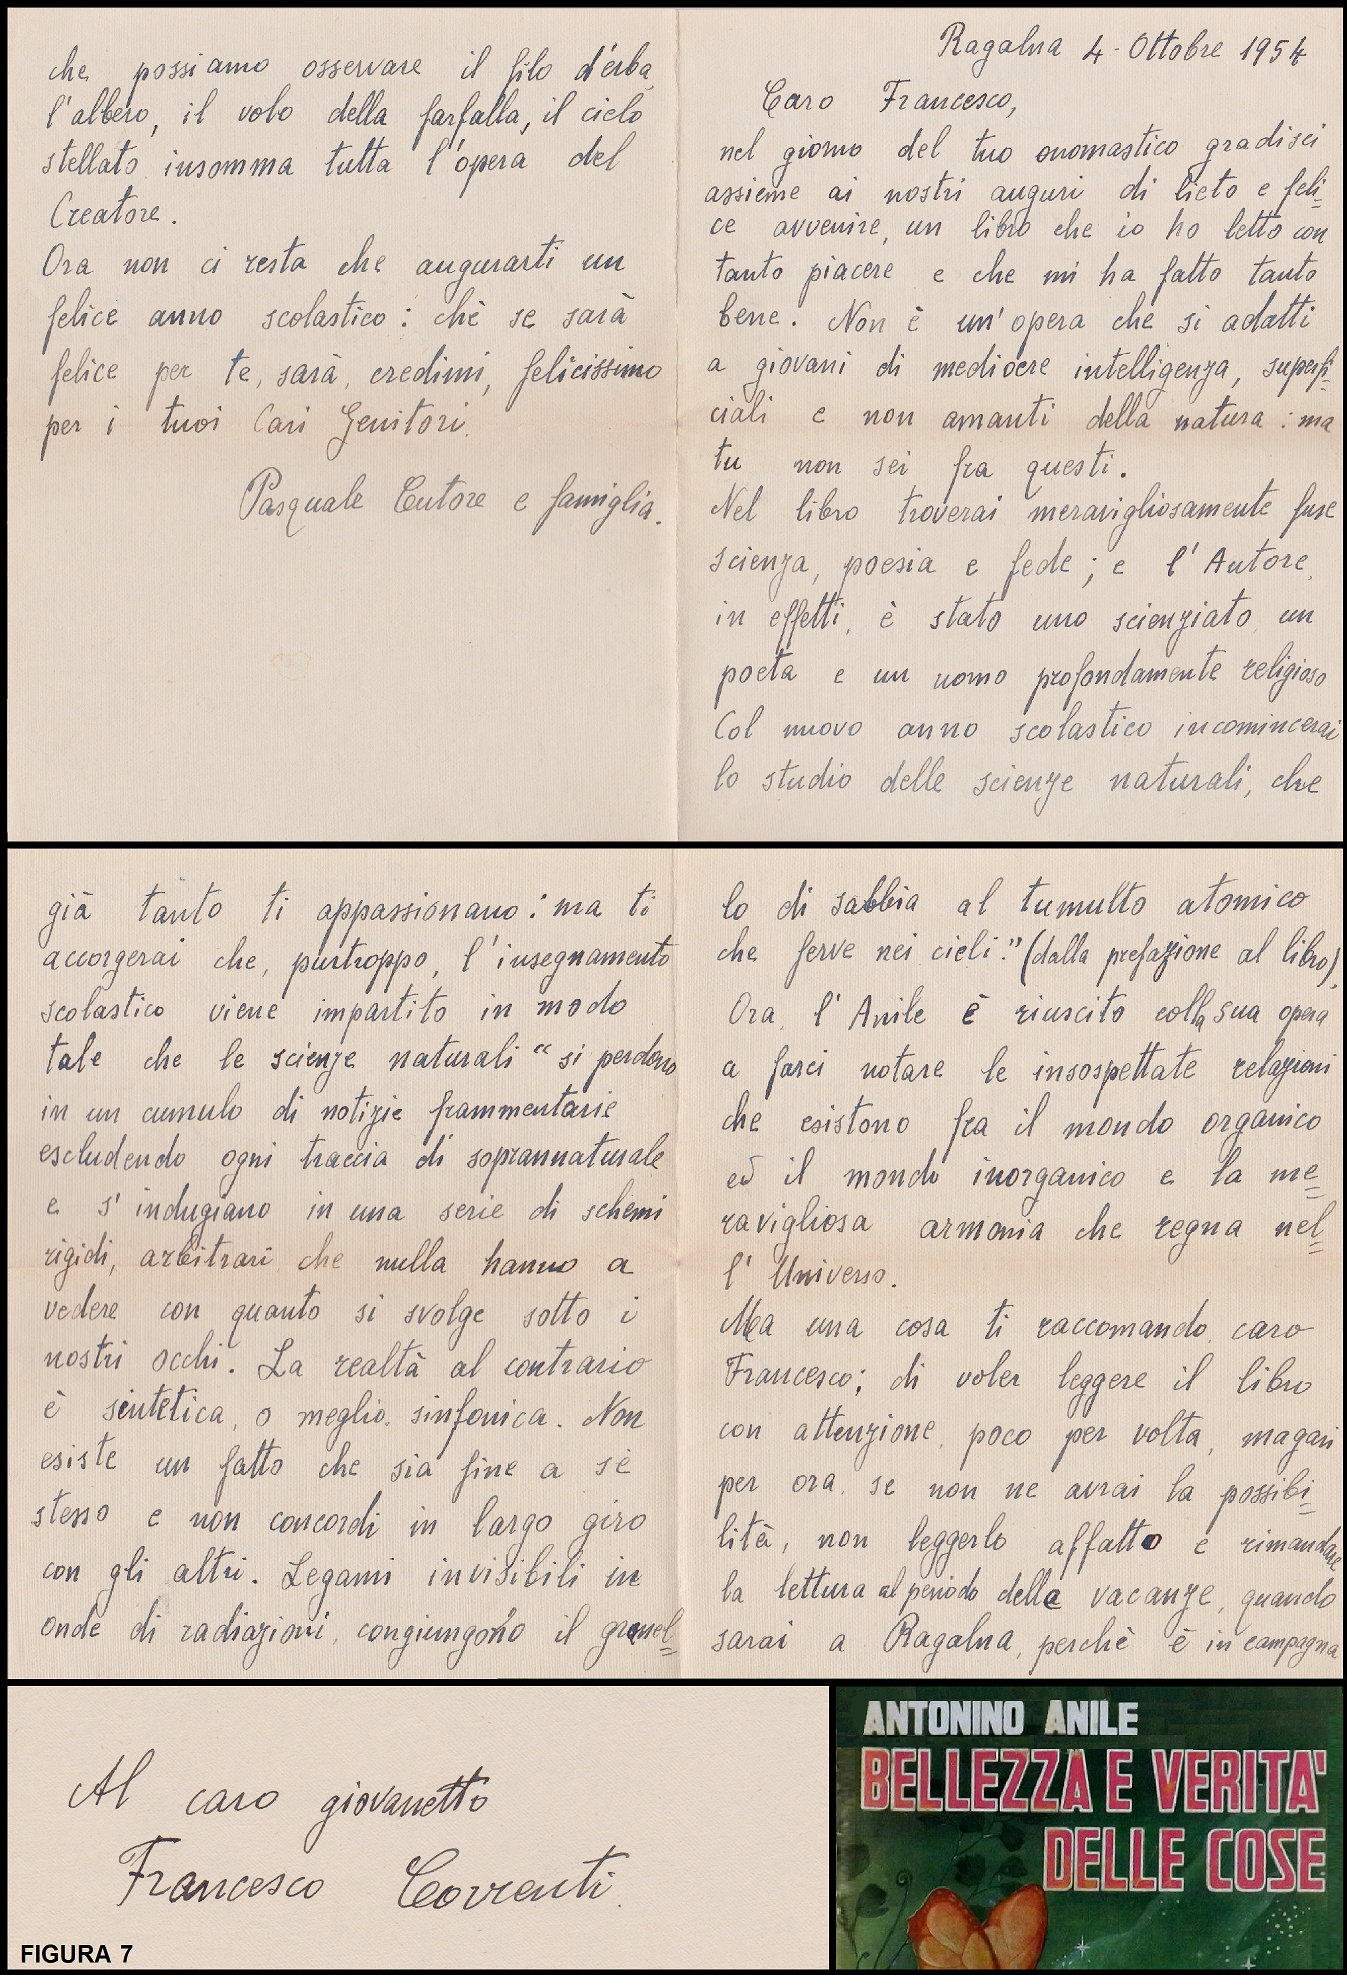 Ragalna 4 - Ottobre 1954
Caro Francesco,
nel giorno del tuo onomastico gradisci
assieme ai nostri auguri di lieto e feli=
ce avvenire, un libro che io ho letto con
tanto piacere e che mi ha fatto tanto
bene. Non è un'opera che si adatti
a giovani di mediocre intelligenza, superfi=
ciali e non amanti della natura : ma
tu non sei fra questi.
Nel libro troverai meravigliosamente fuse
scienza, poesia e fede ; e l'Autore,
in effetti, è stato uno scienziato, un
poeta e un uomo profondamente religioso
Col nuovo anno scolastico incomincerai
lo studio delle scienze naturali, che
già tanto ti appassionano : ma ti
accorgerai che, purtroppo, l'insegnamento
scolastico viene impartito in modo
tale che le scienze naturali "si perdono
in un cumulo di notizie frammentarie
escludendo ogni traccia di soprannaturale
e s'indugiano in una serie di schemi
rigidi, arbitrari che nulla hanno a
vedere con quanto si svolge sotto i
nostri occhi. La realtà al contrario
è sintetica, o meglio, sinfonica. Non
esiste un fatto che sia fine a sé
stesso e non concordi in largo giro
con gli altri. Legami invisibili in
onde di radiazioni, congiungono il granel=
lo di sabbia al tumulto atomico
che ferve nei cieli." (dalla prefazione al libro),
Ora, l'Anile è riuscito colla sua opera
a farci notare le insospettate relazioni
che esistono fra il mondo organico
ed il mondo inorganico e la me=
ravigliosa armonia che regna nel=
l'Universo.
Ma una cosa ti raccomando, caro
Francesco; di voler leggere il libro
con attenzione, poco per volta, magari
per ora, se non ne avrai la possibi=
lità, non leggerlo affatto e rimandare
la lettura al periodo delle vacanze, quando
sarai a Ragalna, perchè è in campagna
che possiamo osservare il filo d'erba,
l'albero, il volo della farfalla, il cielo
stellato insomma tutta l'opera del
Creatore.
Ora non ci resta che augurarti un
felice anno scolastico : chè se sarà
felice per te, sarà, credimi, felicissimo
per i tuoi Cari Genitori.
Pasquale Cutore e famiglia.
Al caro giovanetto
Francesco Correnti.
FIGURA 7
ANTONINO ANILE
BELLEZZA E VERITA'
DELLE COSE